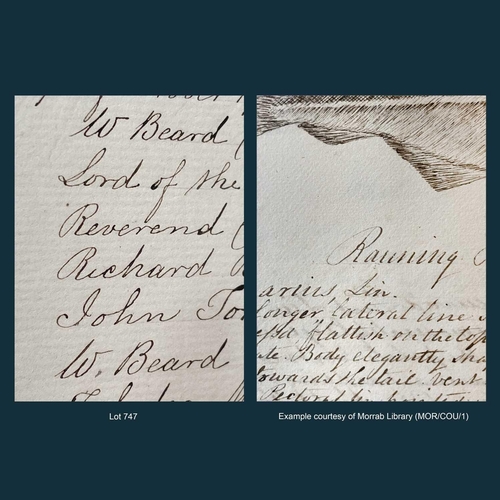 W Beard (
Lord of the
Reverend (
Richard
John
W. Beard
Lot 747
Running
arius, Lin.
longer, lateral line
flattish on the top
Body elegantly
towards the tail. vent
Example courtesy of Morrab Library (MOR/COU/1)